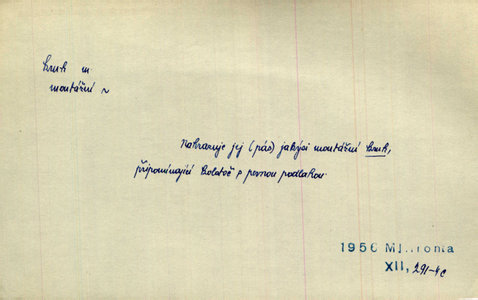 kruh m
montážní ~
Nahrazuje jej (pás) jakýsi montážní kruh,
připomínající kolotoč s pevnou podlahou.
1956
XII, 291-4c